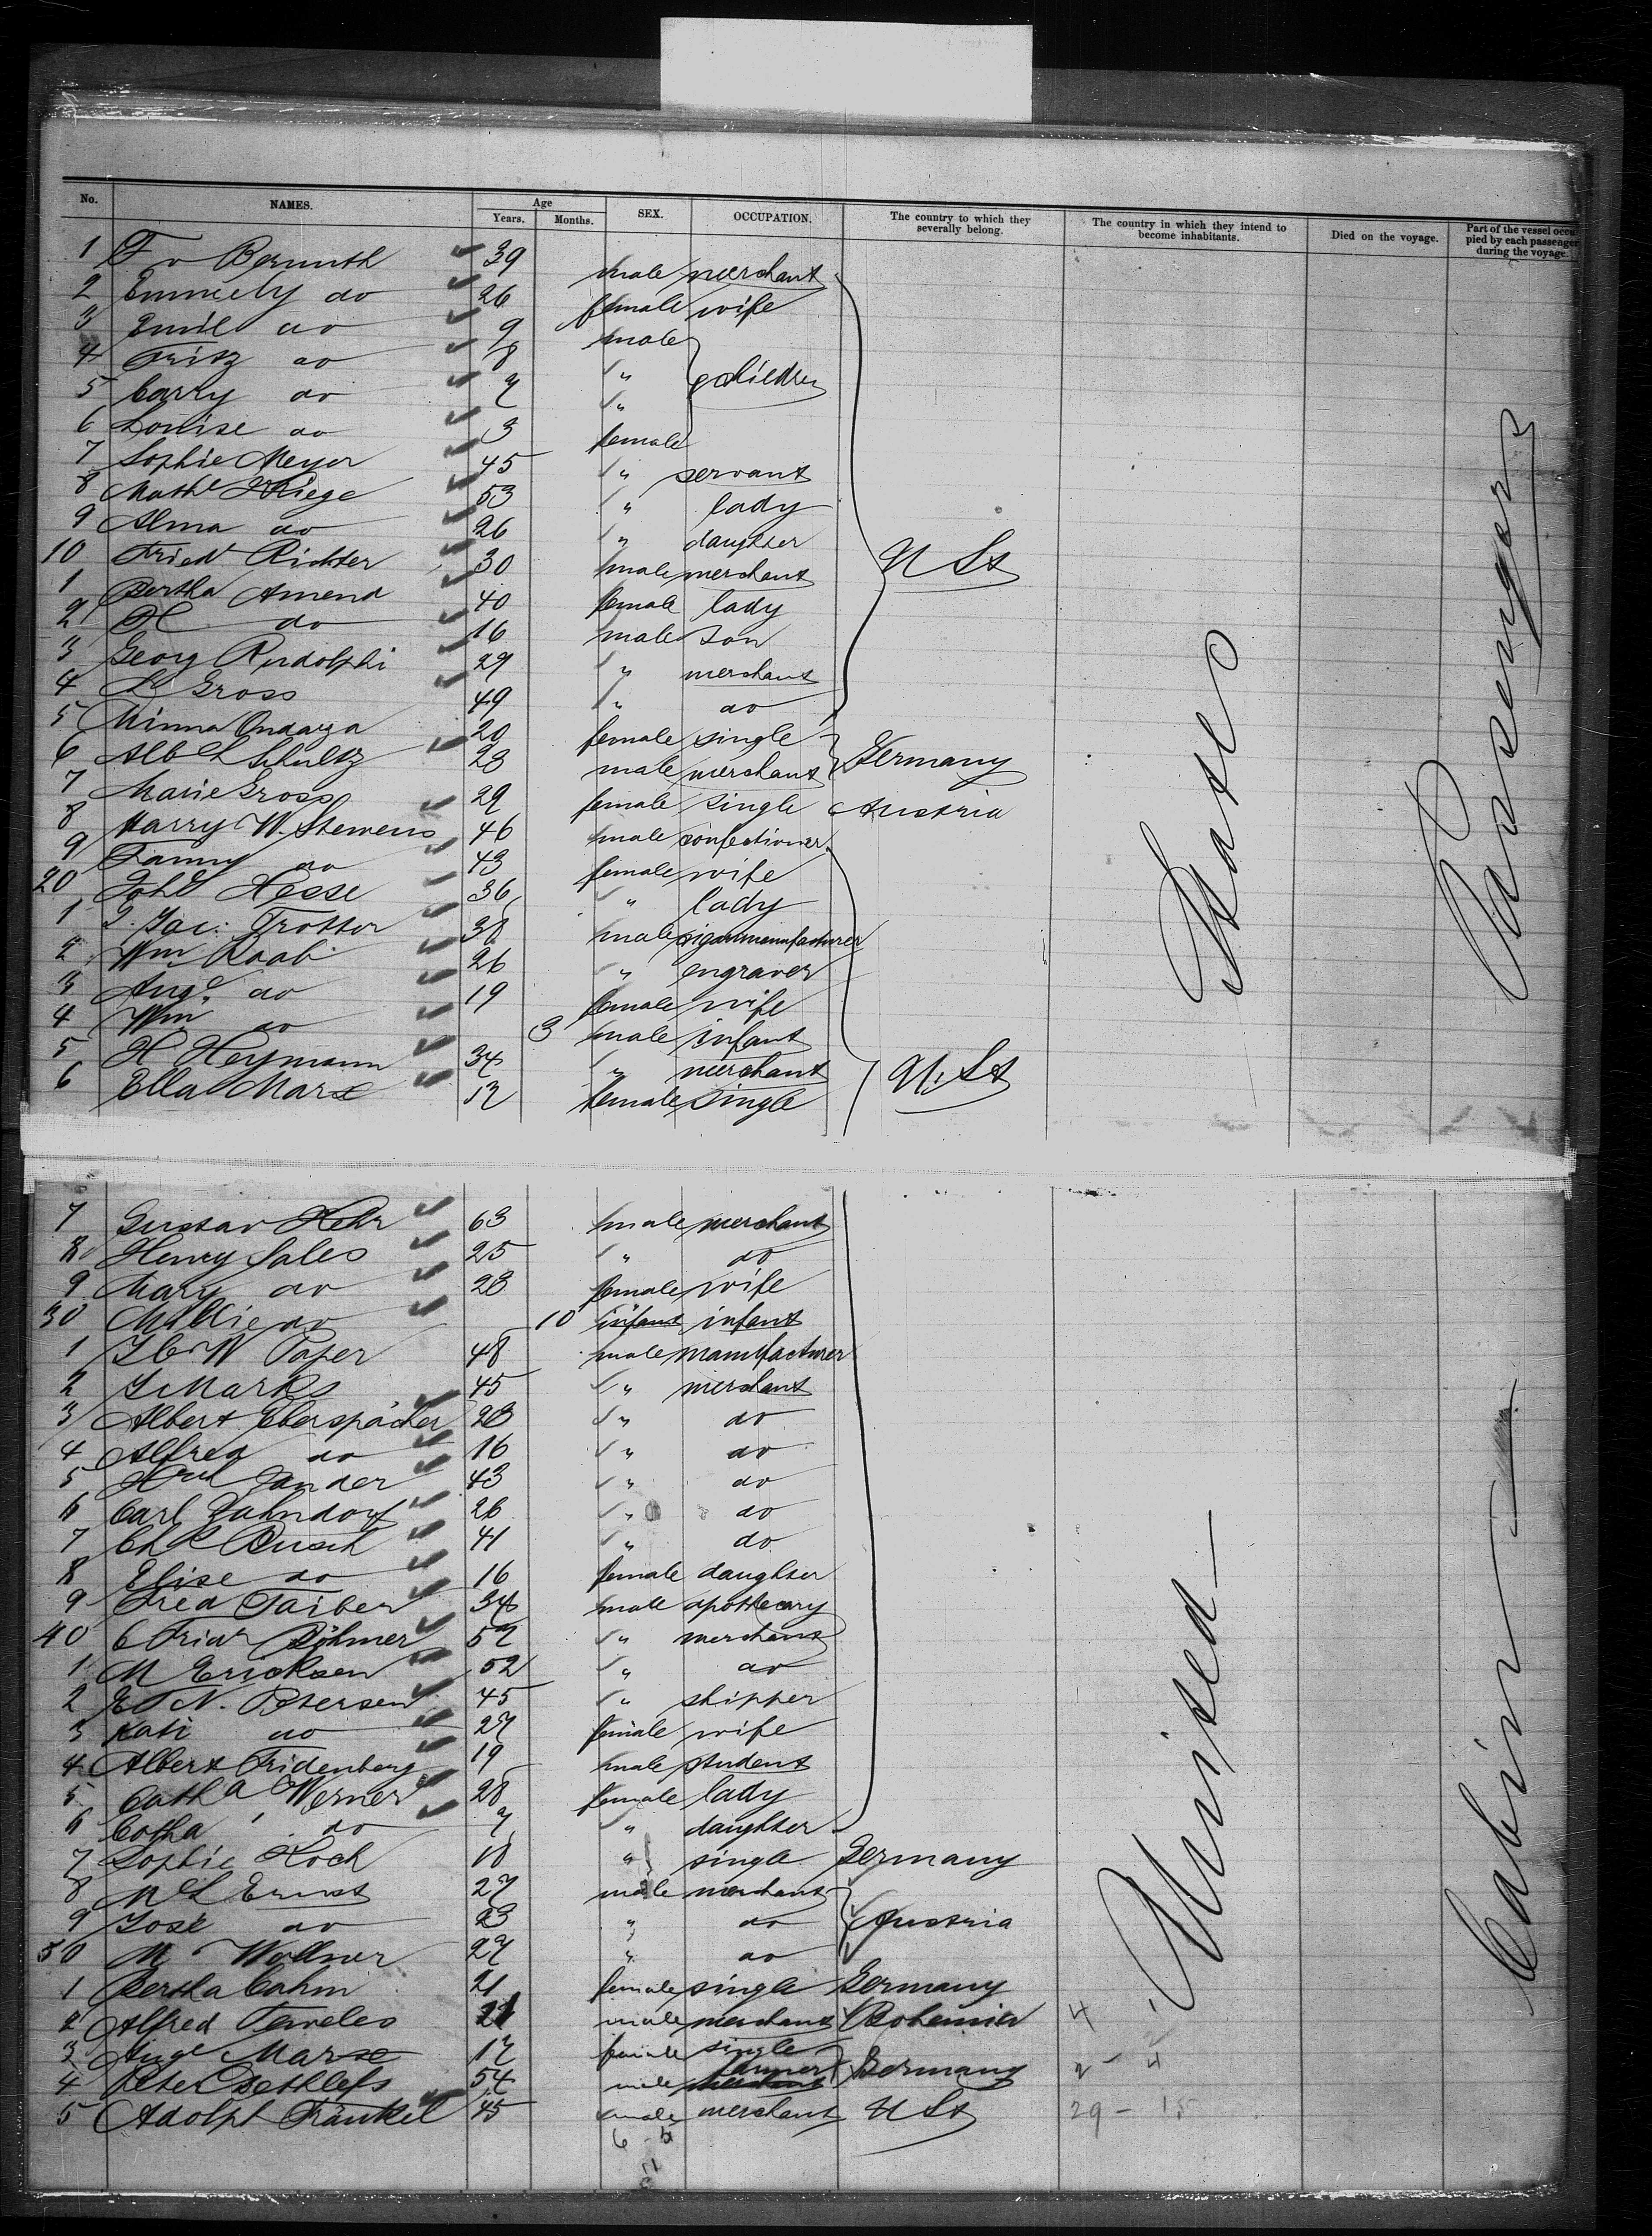 No. NAMES. Age Years. Months. SEX. OCCUPATION. The country to which they severally belong. The country in which they intend to become inhabitants. Died on the voyage. Part of the vessel occupied by each passenger during the voyage.
1 F v Bernuth 39 male merchant
2 Emmely do 26 female wife
3 Emil do 9 male
4 Fritz do 8 " children
5 Carry do 7 "
6 Louise do 3 female
7 Sophie Meyer 45 " servant
8 Mathe Kriege 53 " lady
9 Alma do 26 " daughter
10 Friedr Richter 30 male merchant U St
1 Bertha Amend 40 female lady
2 H do 16 male son
3 Georg Rudolphi 29 " merchant
4 L Gross 49 " do
5 Minna 20 female single
6 Alb Schultz 23 male merchant Germany
7 Marie Gross 29 female single Austria
8 Harry W. Stewens 46 male confectioner
9 Fanny do 43 female wife
20 Joh Hesse 36 " lady
1 Jac. Trotter 38 male cigarmanufacturer
2 Wm Raab 26 " engraver
3 Auge do 19 female wife
4 Wm do 3 male infant
5 H Heymann 34 " merchant U. St
6 Ella Marx 12 female single
7 Gustav Kehr 63 male merchant
8 Henry Sales 25 " do
9 Mary do 23 female wife
30 Millie do 10 infant infant
1 W Paper 48 male manufacturer
2 J Marks 45 " merchant
3 Albert Eberspächer 23 " do
4 Alfred do 16 " do
5 Hch Zander 43 " do
6 Carl Zahndorf 26 " do
7 Chs Busch 41 " do
8 Elise do 16 female daughter
9 Fred Taiber 34 male apothecary
40 C Fridr Böhmer 52 " merchant
1 M Ericksen 52 " do
2 E N. Petersen 45 " shipper
3 Kati do 27 female wife
4 Albert Fridenberg 19 male student
5 Catha Werner 28 female lady
6 Catha do 7 " daughter
7 Sophie Koch 18 " single Germany
8 Ernst 27 male merchant
9 José do 23 " do Austria
50 M Wollner 27 " do
1 Bertha Cahm 21 female single Germany
2 Alfred Teveles 21 male merchant Bohemia 4
3 Auge Marx 17 female single
4 Peter Dethlefs 54 male farmer Germany 2 - 4
5 Adolph Fränkel 45 male merchant U St 29 - 15
6 - 5
United States
Cabin Passengers